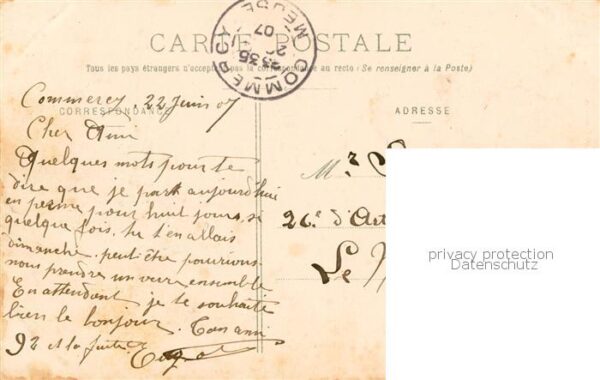 CARTE POSTALE
Tous les pays étrangers n'acceptent pas la correspondance au recto (Se renseigner à la Poste)
COMMERCY
MEUSE
2335
07
CORRESPONDANCE
ADRESSE
Commercy, 22 Juin 07
Cher Ami
Quelques mots pour te
dire que je pars aujourd'hui
en perme pour huit jours, si
quelque fois tu t'en allais
dimanche peut être pourrions
nous prendre un verre ensemble
En attendant je te souhaite
bien le bonjour. Ton ami
92 et la fuite
Mr
26e d'Art
Le
privacy protection
Datenschutz